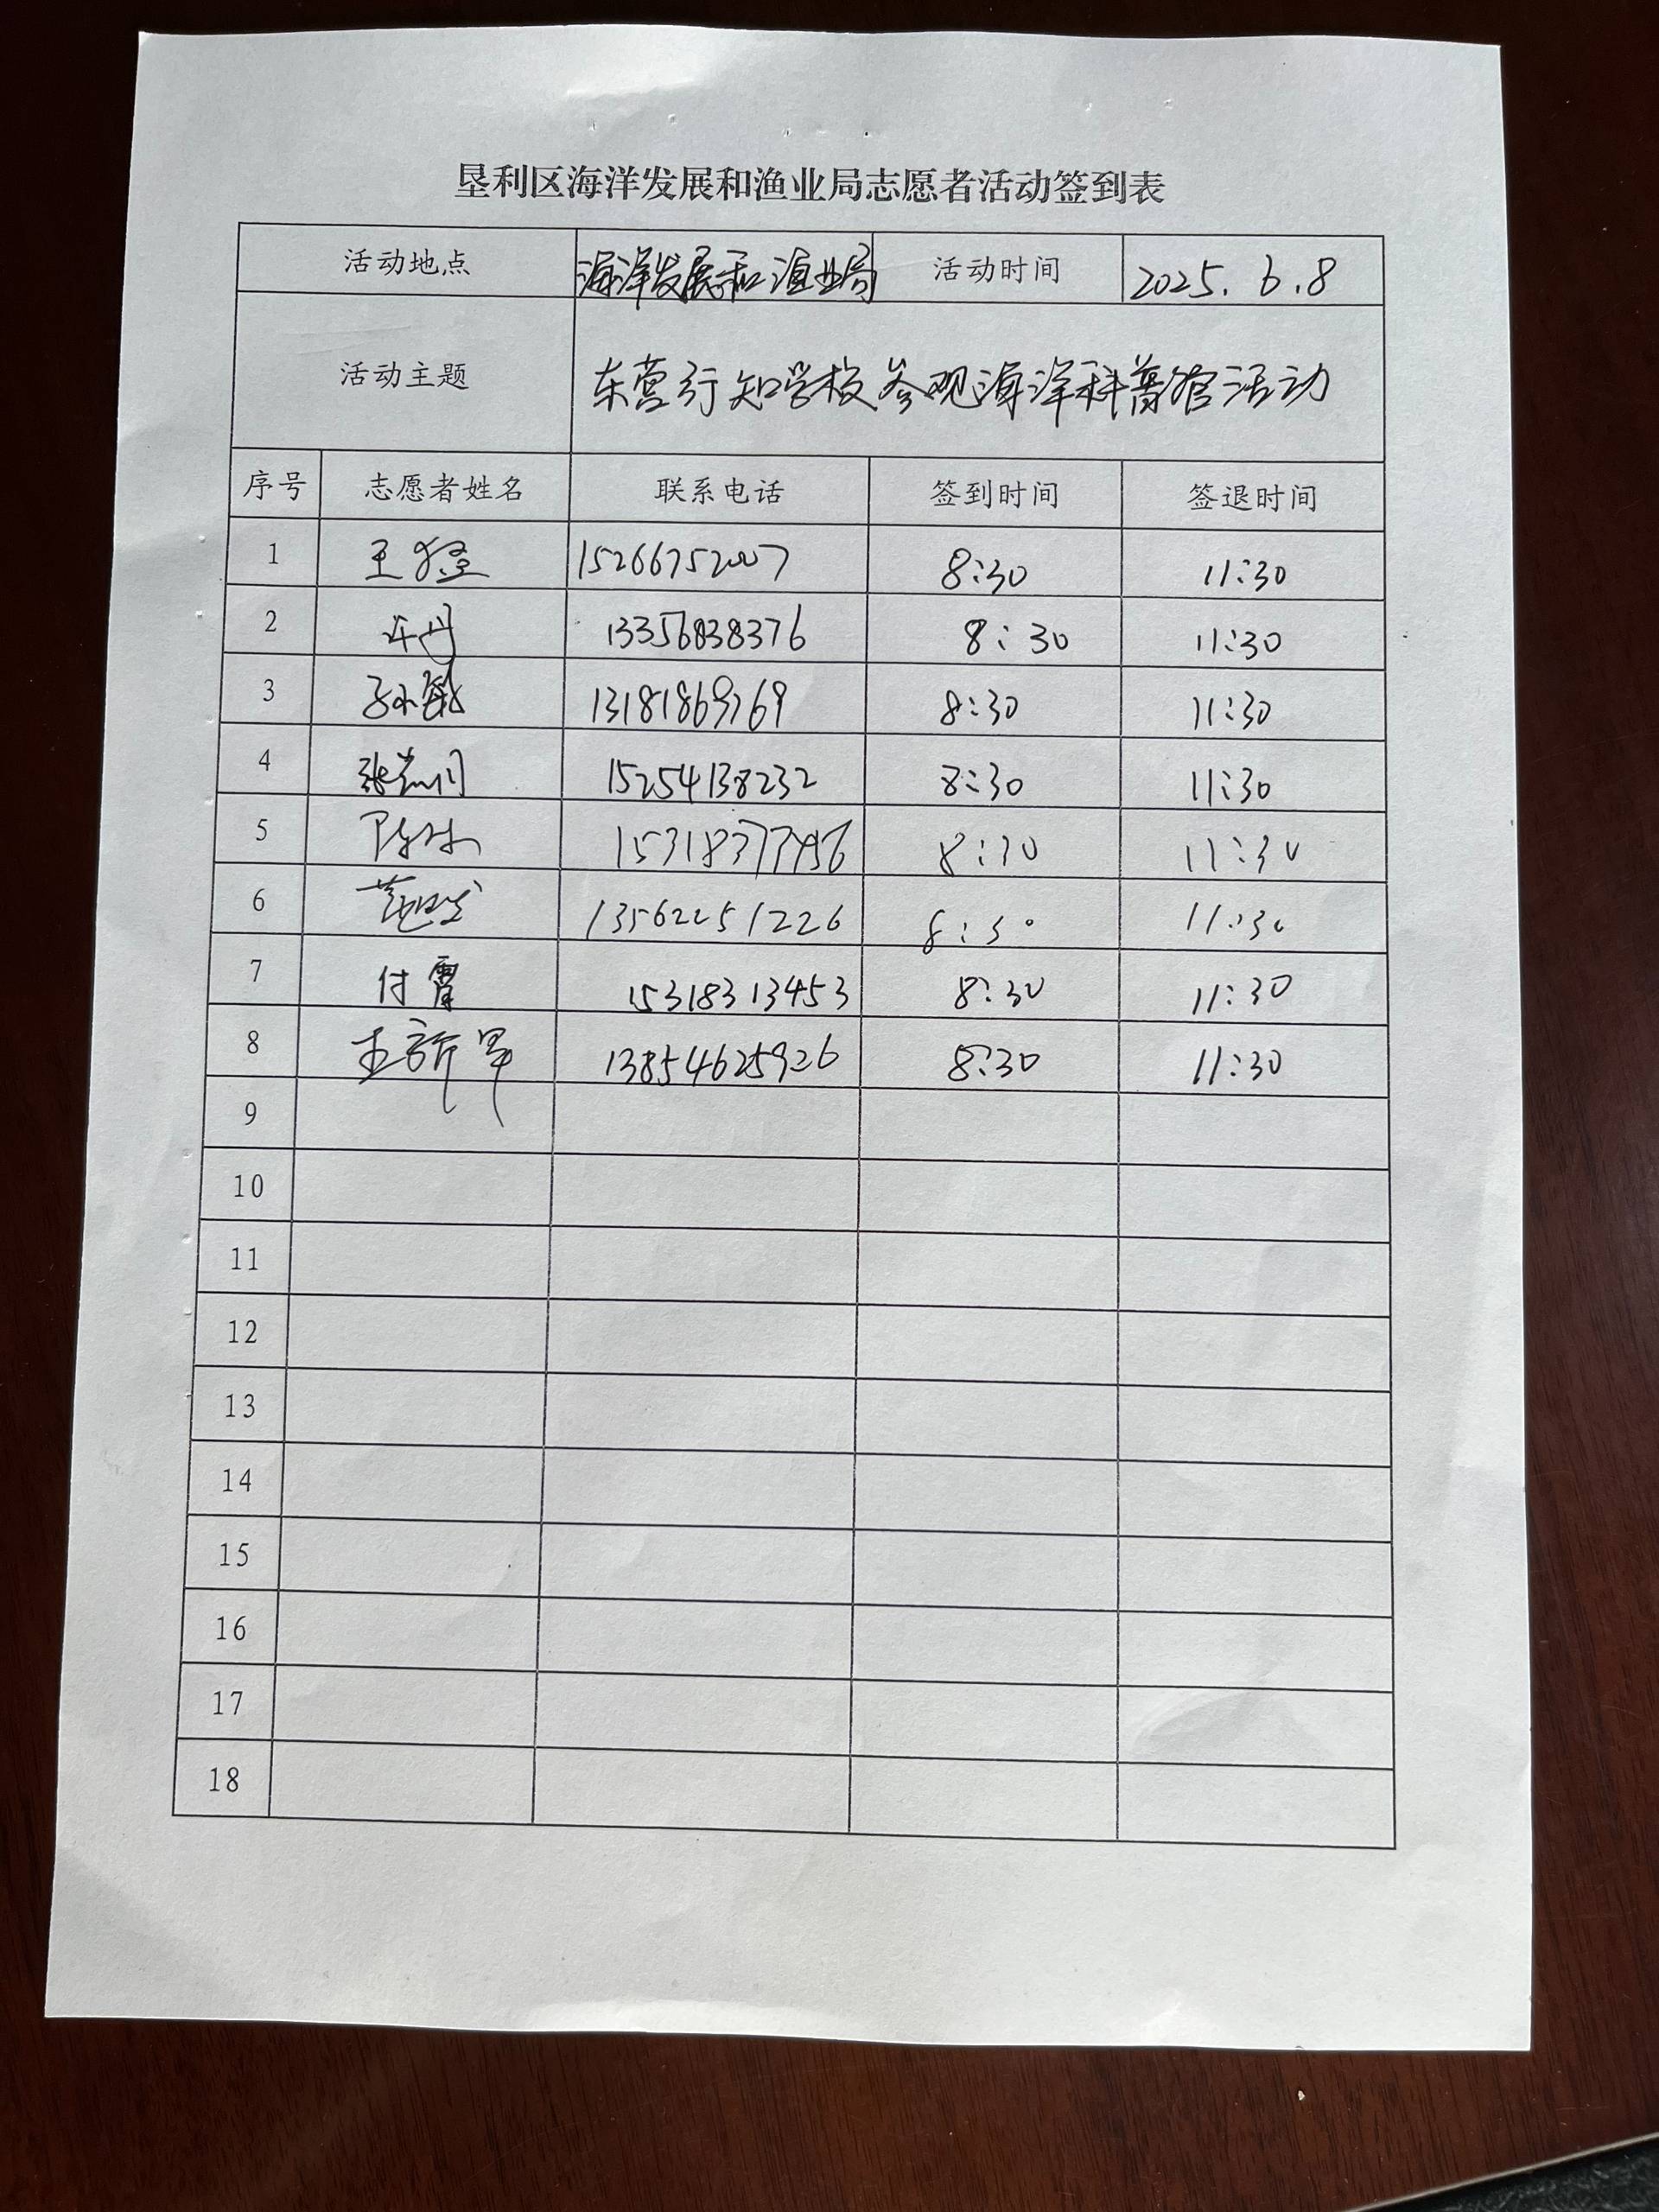 垦利区海洋发展和渔业局志愿者活动签到表
活动地点 海洋发展和渔业局 活动时间 2025.6.8
活动主题 东营行知学校参观海洋科普馆活动
序号 志愿者姓名 联系电话 签到时间 签退时间
1 王 15266752007 8:30 11:30
2 许丹 13356838376 8:30 11:30
3 孙敏 13181869769 8:30 11:30
4 张 15254138232 8:30 11:30
5 陈林 8:30 11:30
6 范 13562251226 8:30 11:30
7 付霄 15318313453 8:30 11:30
8 王 13854625926 8:30 11:30
9
10
11
12
13
14
15
16
17
18